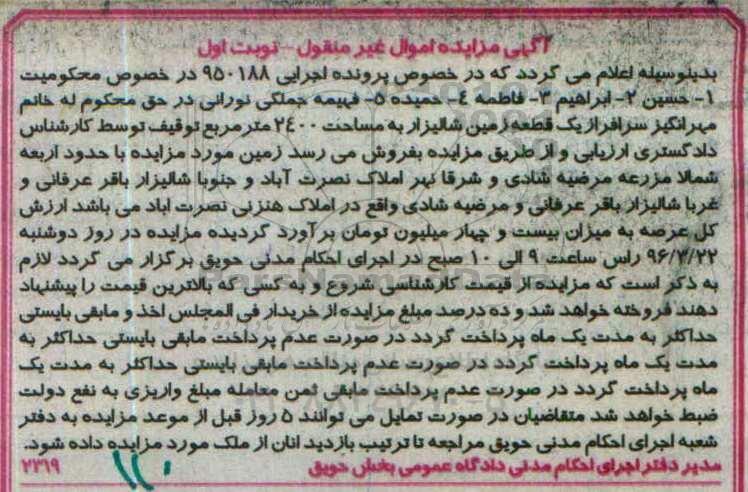 آگهی مزایده اموال غیر منقول - نوبت اول
بدینوسیله اعلام می گردد که در خصوص پرونده اجرایی ۹۵۰۱۸۸ در خصوص محکومیت
۱- حسین ۲- ابراهیم ۳- فاطمه ٤- حمیده ۵- فهیمه جملکی نورانی در حق محکوم له خانم
مهرانگیز سرافراز یک قطعه زمین شالیزار به مساحت ۲٤۰۰ متر مربع توقیف توسط کارشناس
دادگستری ارزیابی و از طریق مزایده بفروش می رسد زمین مورد مزایده با حدود اربعه
شمالا مزرعه مرضیه شادی و شرقا نهر املاک نصرت آباد و جنوبا شالیزار باقر عرفانی و
غربا شالیزار باقر عرفانی و مرضیه شادی واقع در املاک هنزنی نصرت اباد می باشد ارزش
کل عرصه به میزان بیست و چهار میلیون تومان برآورد گردیده مزایده در روز دوشنبه
۹۶/۷/۲۲ راس ساعت ۹ الی ۱۰ صبح در اجرای احکام مدنی حویق برگزار می گردد لازم
به ذکر است که مزایده از قیمت کارشناسی شروع و به کسی که بالاترین قیمت را پیشنهاد
دهند فروخته خواهد شد و ده درصد مبلغ مزایده از خریدار فی المجلس اخذ و مابقی بایستی
حداکثر به مدت یک ماه پرداخت گردد در صورت عدم پرداخت مابقی بایستی حداکثر به
مدت یک ماه پرداخت گردد در صورت عدم پرداخت مابقی بایستی حداکثر به مدت یک
ماه پرداخت گردد در صورت عدم پرداخت مابقی ثمن معامله مبلغ واریزی به نفع دولت
ضبط خواهد شد متقاضیان در صورت تمایل می توانند ۵ روز قبل از موعد مزایده به دفتر
شعبه اجرای احکام مدنی حویق مراجعه تا ترتیب بازدید انان از ملک مورد مزایده داده شود.
مدیر دفتر اجرای احکام مدنی دادگاه عمومی بخش حویق
۲۲۱۹